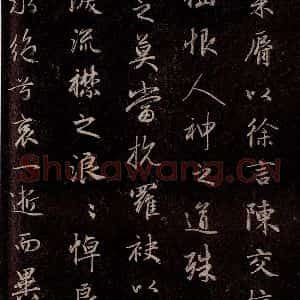 朱脣以徐言陳交接
綱恨人神之道殊
之莫當抗羅袂以
淚流襟之浪〻悼良
永絕兮哀逝而異
Shufawang.CN